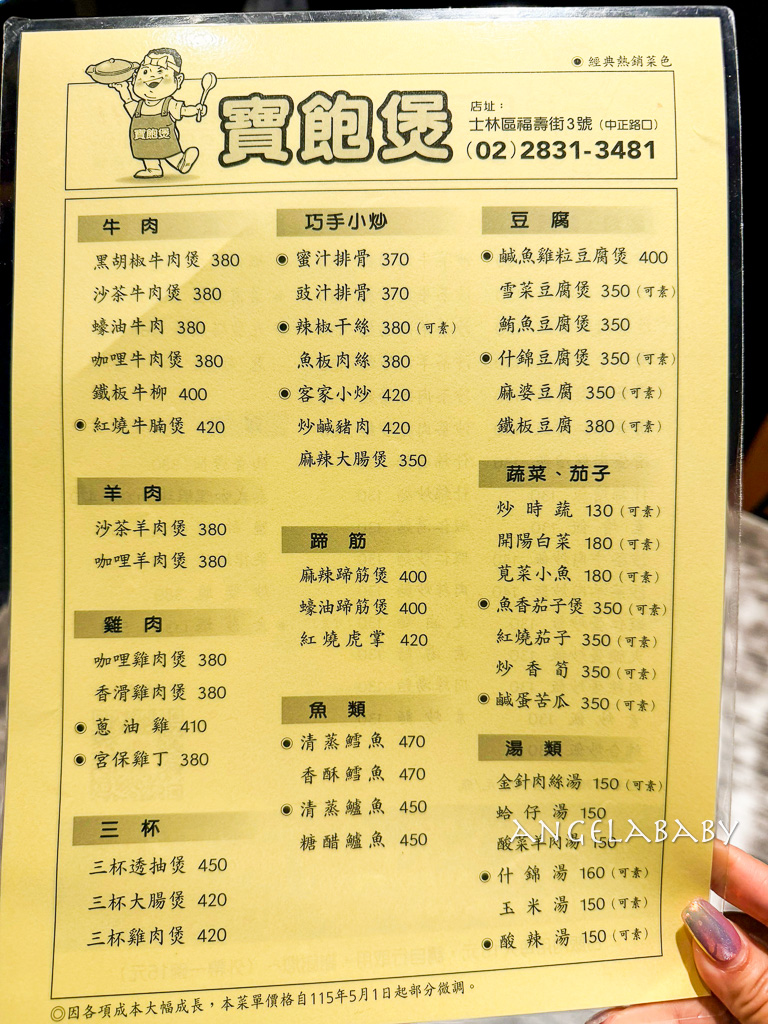 ◉ 經典熱銷菜色
寶飽煲
寶飽煲
店址：
士林區福壽街3號（中正路口）
(02)2831-3481
牛肉
黑胡椒牛肉煲 380
沙茶牛肉煲 380
蠔油牛肉 380
咖哩牛肉煲 380
鐵板牛柳 400
◉ 紅燒牛腩煲 420
羊肉
沙茶羊肉煲 380
咖哩羊肉煲 380
雞肉
咖哩雞肉煲 380
香滑雞肉煲 380
◉ 蔥油雞 410
◉ 宮保雞丁 380
三杯
三杯透抽煲 450
三杯大腸煲 420
三杯雞肉煲 420
巧手小炒
◉ 蜜汁排骨 370
豉汁排骨 370
◉ 辣椒干絲 380（可素）
魚板肉絲 380
◉ 客家小炒 420
炒鹹豬肉 420
麻辣大腸煲 350
蹄筋
麻辣蹄筋煲 400
蠔油蹄筋煲 400
紅燒虎掌 420
魚類
◉ 清蒸鱈魚 470
香酥鱈魚 470
◉ 清蒸鱸魚 450
糖醋鱸魚 450
豆腐
◉ 鹹魚雞粒豆腐煲 400
雪菜豆腐煲 350（可素）
鮪魚豆腐煲 350
◉ 什錦豆腐煲 350（可素）
麻婆豆腐 350（可素）
鐵板豆腐 380（可素）
蔬菜、茄子
炒時蔬 130（可素）
開陽白菜 180（可素）
莧菜小魚 180（可素）
◉ 魚香茄子煲 350（可素）
紅燒茄子 350（可素）
炒香筍 350（可素）
◉ 鹹蛋苦瓜 350（可素）
湯類
金針肉絲湯 150（可素）
蛤仔湯 150
酸菜羊肉湯 150
◉ 什錦湯 160（可素）
玉米湯 150（可素）
◉ 酸辣湯 150（可素）
ANGELABABY
◎因各項成本大幅成長，本菜單價格自115年5月1日起部分微調。